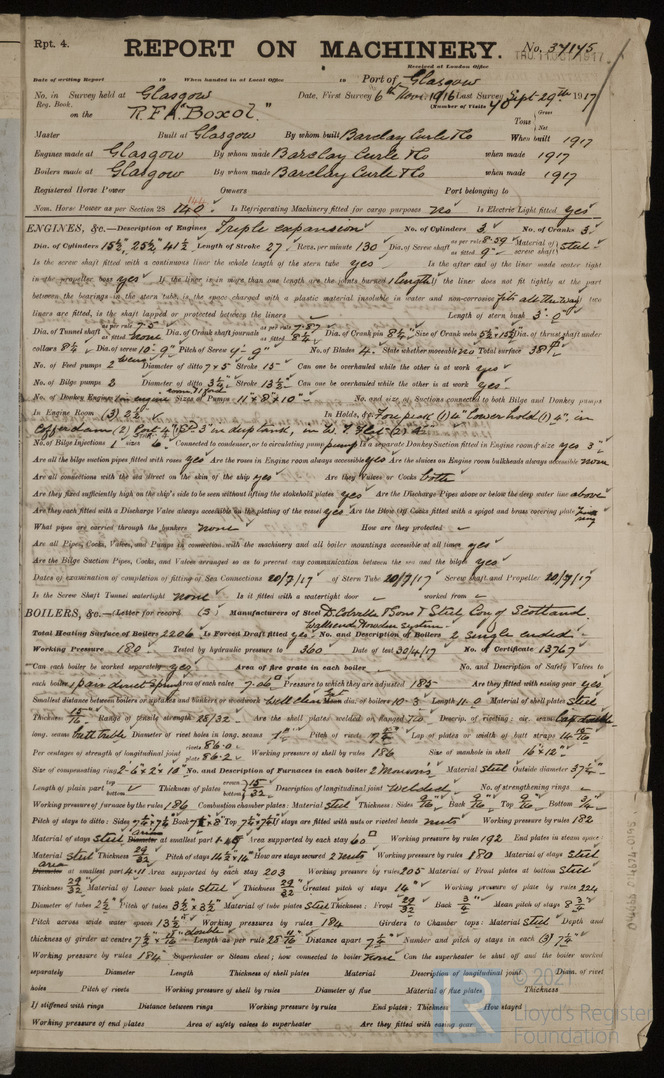 Rpt. 4.
REPORT ON MACHINERY. No. 37175
THU. 11 OCT 1917
Received at London Office
Date of writing Report 19 When handed in at Local Office 19 Port of Glasgow
No. in Survey held at Glasgow Date, First Survey 6th Nov. 1916 Last Survey Sept. 29th 1917
Reg. Book. (Number of Visits 48
on the R.F.A. "Boxol." Tons Gross Net
Master Built at Glasgow By whom built Barclay Curle & Co When built 1917
Engines made at Glasgow By whom made Barclay Curle & Co when made 1917
Boilers made at Glasgow By whom made Barclay Curle & Co when made 1917
Registered Horse Power Owners Port belonging to
Nom. Horse Power as per Section 28 140. 144 Is Refrigerating Machinery fitted for cargo purposes No Is Electric Light fitted Yes
ENGINES, &c.—Description of Engines Triple expansion No. of Cylinders 3 No. of Cranks 3
Dia. of Cylinders 15½" 25½" 41½ Length of Stroke 27. Revs. per minute 130 Dia. of Screw shaft as per rule 8.59 as fitted 9" Material of screw shaft steel
Is the screw shaft fitted with a continuous liner the whole length of the stern tube yes Is the after end of the liner made water tight
in the propeller boss yes If the liner is in more than one length are the joints burned 1 length If the liner does not fit tightly at the part
between the bearings in the stern tube, is the space charged with a plastic material insoluble in water and non-corrosive fits all the way If two
liners are fitted, is the shaft lapped or protected between the liners Length of stern bush 3'. 0"
Dia. of Tunnel shaft as per rule 7.5 as fitted none Dia. of Crank shaft journals as per rule 7.87 as fitted 8¼ Dia. of Crank pin 8¼" Size of Crank webs Dia. of thrust shaft under
collars 8¼ Dia. of screw 10-9" Pitch of Screw 9-9" No. of Blades 4. State whether moveable no Total surface 38
No. of Feed pumps 2 Diameter of ditto 7 x 5 Stroke 15 Can one be overhauled while the other is at work yes
No. of Bilge pumps 2 Diameter of ditto 3½ Stroke 13½ Can one be overhauled while the other is at work yes
No. of Donkey Engines Sizes of Pumps No. and size of Suctions connected to both Bilge and Donkey pumps
In Engine Room (3) 2½ In Holds, &c. Fore peak (1) 4" lower hold (1) 4". in
No. of Bilge Injections 1 sizes 6 Connected to condenser, or to circulating pump pump Is a separate Donkey Suction fitted in Engine room & size yes 3"
Are all the bilge suction pipes fitted with roses yes Are the roses in Engine room always accessible yes Are the sluices on Engine room bulkheads always accessible none
Are all connections with the sea direct on the skin of the ship yes Are they Valves or Cocks both
Are they fixed sufficiently high on the ship's side to be seen without lifting the stokehold plates yes Are the Discharge Pipes above or below the deep water line above
Are they each fitted with a Discharge Valve always accessible on the plating of the vessel yes Are the Blow Off Cocks fitted with a spigot and brass covering plate
What pipes are carried through the bunkers none How are they protected
Are all Pipes, Cocks, Valves, and Pumps in connection with the machinery and all boiler mountings accessible at all times yes
Are the Bilge Suction Pipes, Cocks, and Valves arranged so as to prevent any communication between the sea and the bilges yes
Dates of examination of completion of fitting of Sea Connections 20/7/17 of Stern Tube 20/7/17 Screw shaft and Propeller 20/7/17
Is the Screw Shaft Tunnel watertight none Is it fitted with a watertight door worked from
BOILERS, &c.—(Letter for record (S) Manufacturers of Steel D. Colville & Sons & Steel Coy of Scotland.
Wallsend Howden system
Total Heating Surface of Boilers 2206. Is Forced Draft fitted yes No. and Description of Boilers 2 single ended
Working Pressure 180 Tested by hydraulic pressure to 360 Date of test 30/4/17 No. of Certificate 13767
Can each boiler be worked separately yes Area of fire grate in each boiler No. and Description of Safety Valves to
each boiler 1 pair direct spring Area of each valve 7.06 Pressure to which they are adjusted 185 Are they fitted with easing gear yes
Smallest distance between boilers or uptakes and bunkers or woodwork well clear dia. of boilers 10-3 Length 11-0 Material of shell plates steel
Thickness Range of tensile strength 28/32 Are the shell plates welded or flanged no Descrip. of riveting: cir. seams lap double
long. seams butt treble Diameter of rivet holes in long. seams 1" Pitch of rivets Lap of plates or width of butt straps
Per centages of strength of longitudinal joint rivets 86.0 plate 86.2 Working pressure of shell by rules 186 Size of manhole in shell 16" x 12"
Size of compensating ring No. and Description of Furnaces in each boiler 2 Morison's Material steel Outside diameter
Length of plain part top bottom Thickness of plates crown bottom 15/32 Description of longitudinal joint welded No. of strengthening rings
Working pressure of furnace by the rules 186 Combustion chamber plates: Material steel Thickness: Sides 9/16 Back 9/16 Top 9/16 Bottom
Pitch of stays to ditto: Sides Back Top If stays are fitted with nuts or riveted heads nuts Working pressure by rules 182
Material of stays steel Diameter at smallest part Area supported by each stay 60 Working pressure by rules 192 End plates in steam space:
Material steel Thickness 29/32 Pitch of stays How are stays secured 2 nuts Working pressure by rules 180 Material of stays steel
Diameter at smallest part 4.11 Area supported by each stay 203 Working pressure by rules 205 Material of Front plates at bottom steel
Thickness 29/32 Material of Lower back plate steel Thickness 29/32 Greatest pitch of stays 14" Working pressure of plate by rules 224
Diameter of tubes 2½" Pitch of tubes 3½ x 3½ Material of tube plates steel Thickness: Front 29/32 Back ¾" Mean pitch of stays
Pitch across wide water spaces 13½ Working pressures by rules 184 Girders to Chamber tops: Material steel Depth and
thickness of girder at centre double Length as per rule Distance apart Number and pitch of stays in each
Working pressure by rules 184 Superheater or Steam chest; how connected to boiler none Can the superheater be shut off and the boiler worked
separately Diameter Length Thickness of shell plates Material Description of longitudinal joint Diam. of rivet
holes Pitch of rivets Working pressure of shell by rules Diameter of flue Material of flue plates Thickness
If stiffened with rings Distance between rings Working pressure by rules End plates: Thickness How stayed
Working pressure of end plates Area of safety valves to superheater Are they fitted with easing gear
© 2021
Lloyd's Register
Foundation